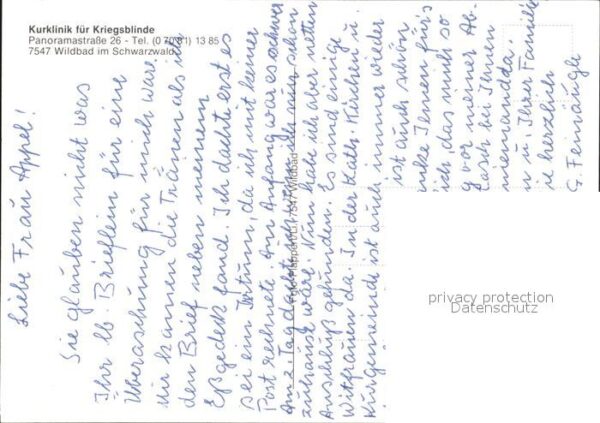 Kurklinik für Kriegsblinde
Panoramastraße 26 - Tel. (0 70 81) 13 85
7547 Wildbad im Schwarzwald
Liebe Frau Appel!
Sie glauben nicht was
Ihr lb. Brieflein für eine
Überaschung für mich ware.
Mir kammen die Tränen als ich
den Brief neben meinem
Eßgedeck fand. Ich dachte erst es
sei ein Irrtum, da ich mit keiner
Post rechnete. Am Anfang war es schwer
am 2. Tag dachte ich schon
zuhause wäre. Nun habe ich aber netten
Anschluß gefunden. Es sind einige
Witfrauen da. In der Kath. Kirchen u.
Kurgemeinde ist auch immer wieder
ist auch schön
nke Ihnen für's
ich, das mich so
g vor meiner Ab-
rasch bei Ihnen
niemand da.
n u. Ihrer Familie
ie herzlich
G. Feinäugle
7547 Wildbad
privacy protection
Datenschutz